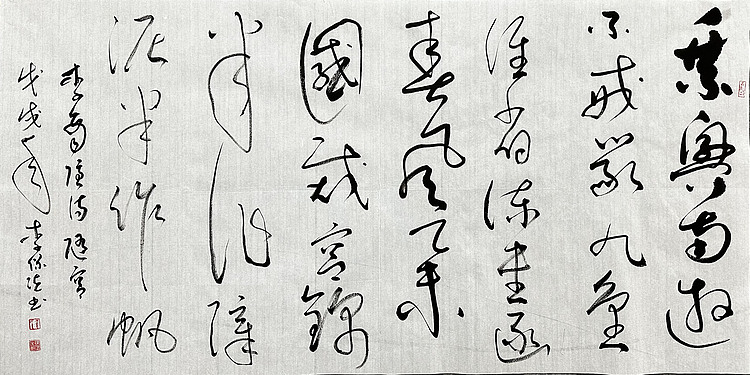 乘興南遊
不戒嚴九重
誰省諫書函
春風舉
國裁宮錦
半作障
泥半作帆
李商隱詩隋宮
戊戌年李書